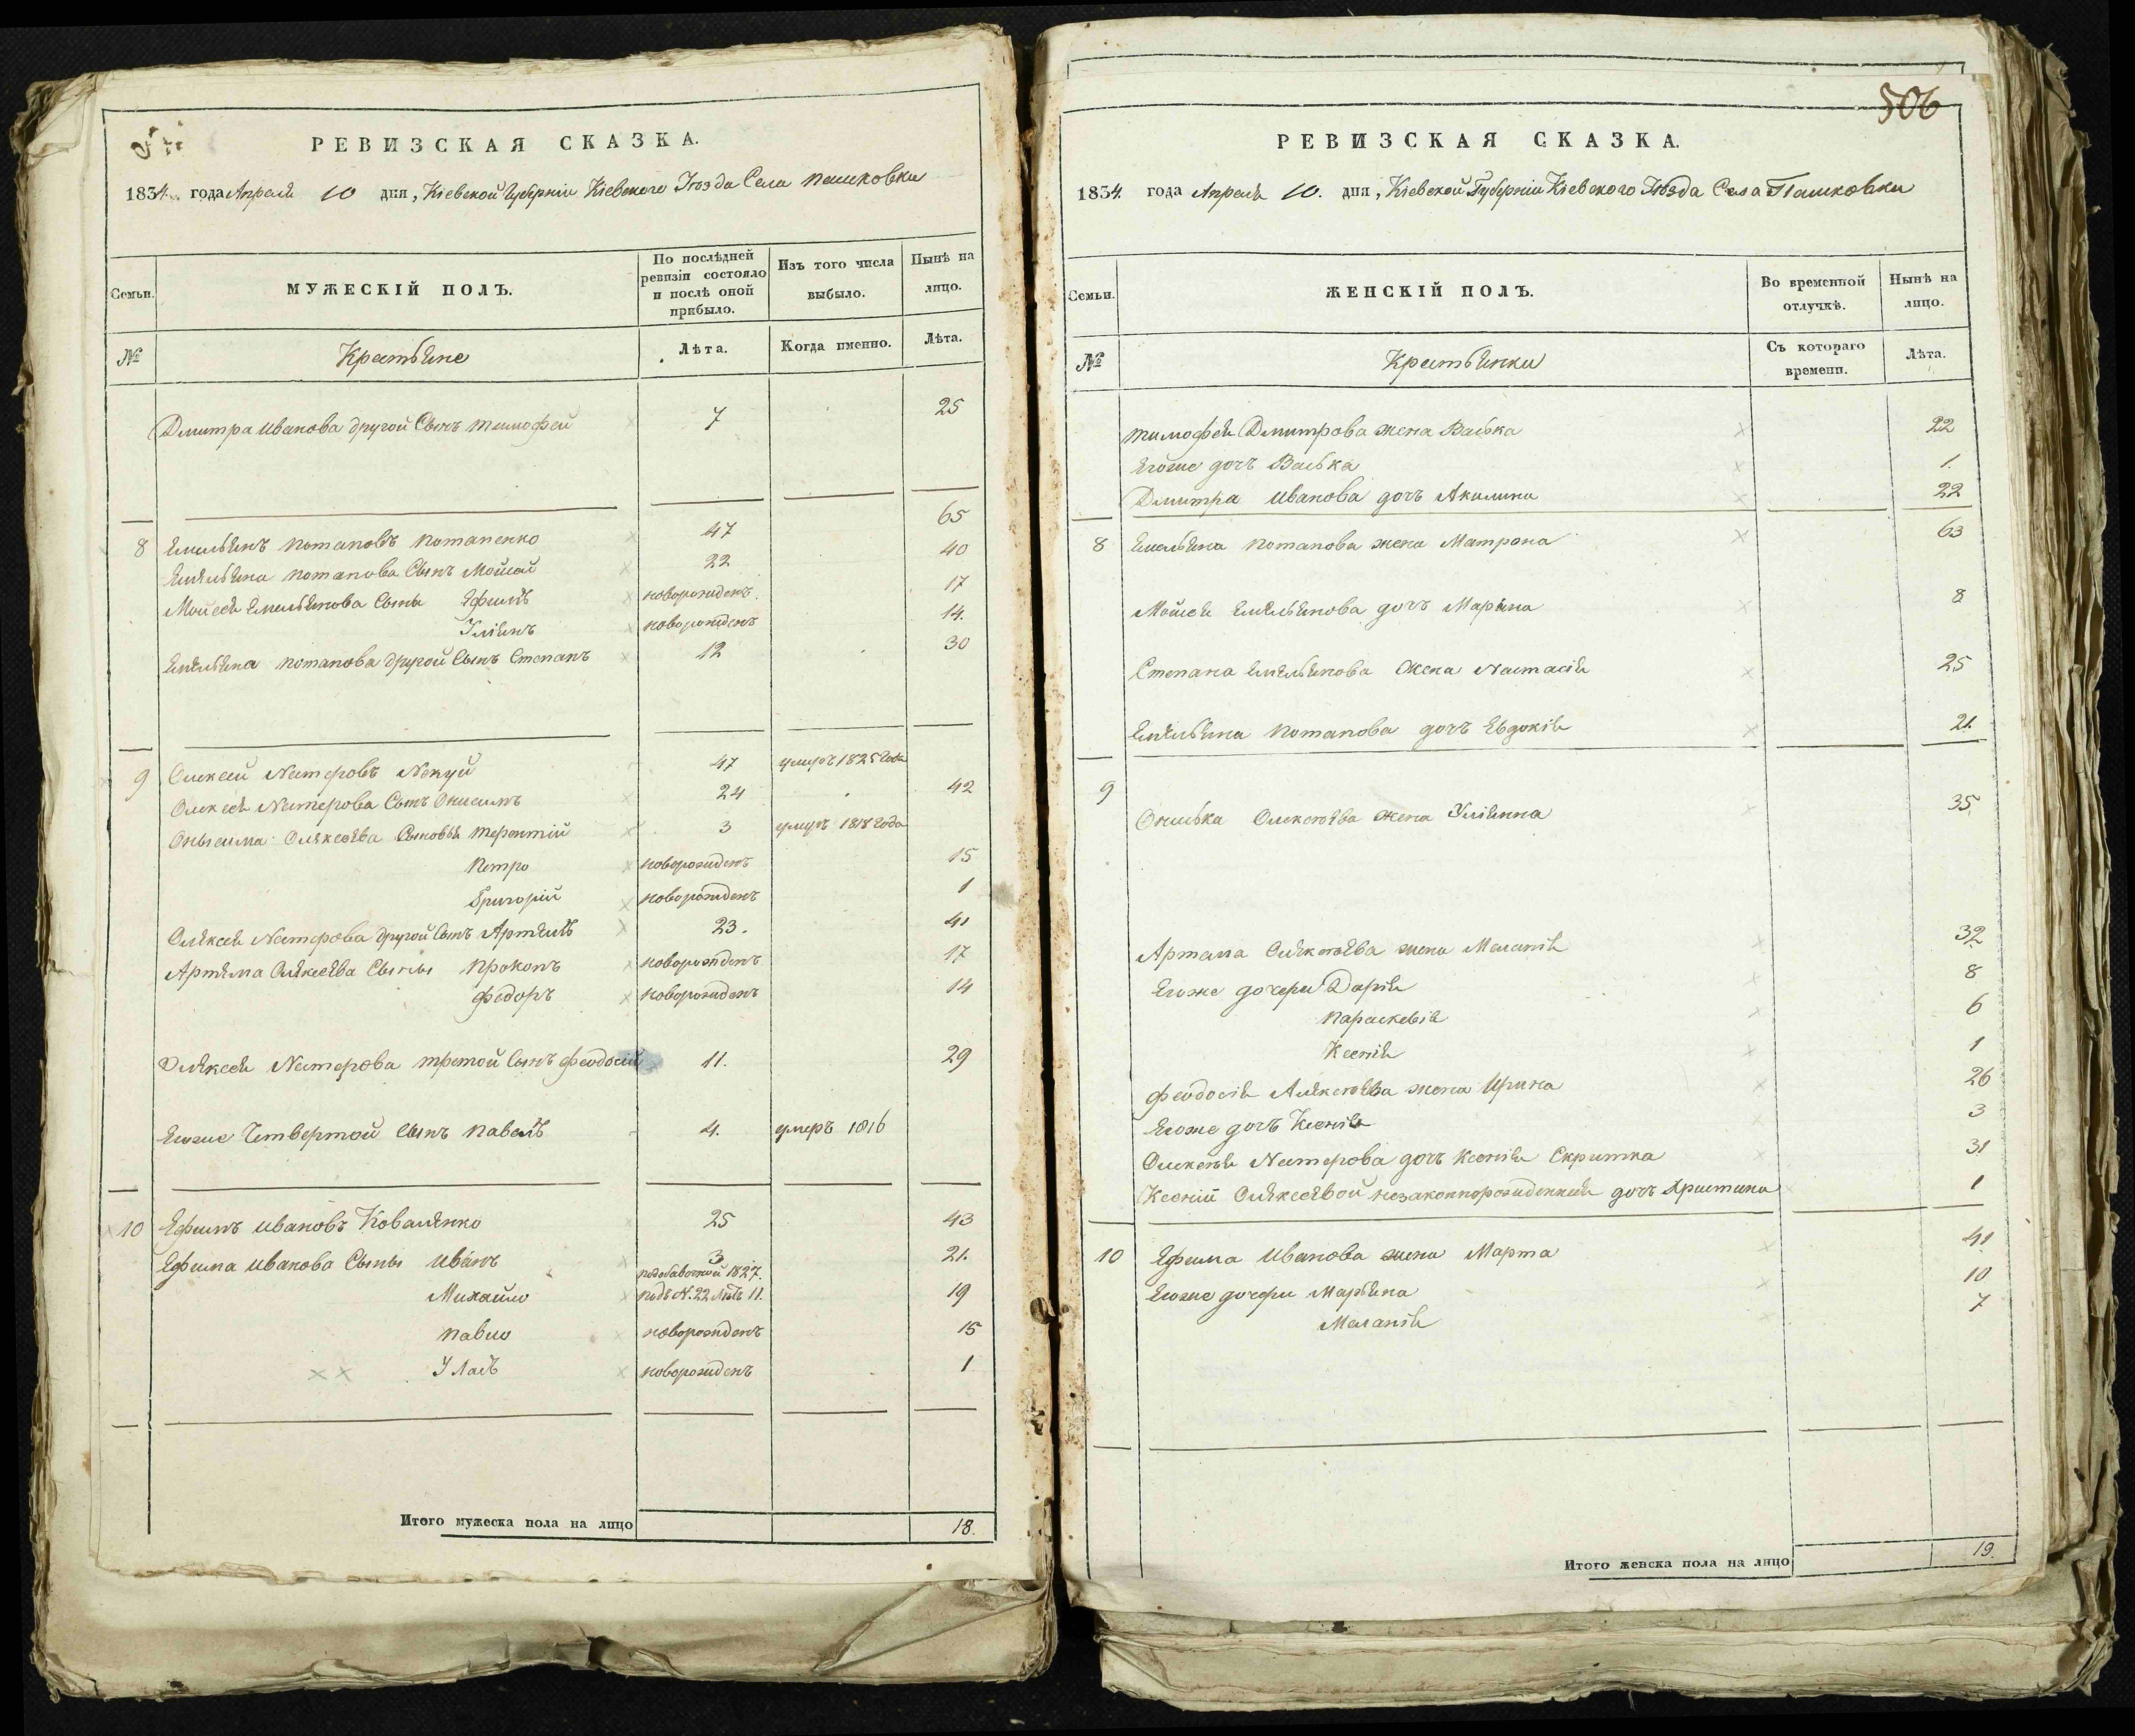 РЕВИЗСКАЯ СКАЗКА.
1834. года Апреля 10 дня, Кіевской Губерніи Кіевского Уезда Села Пашковки
Семьи.
МУЖЕСКІЙ ПОЛЪ.
По послѣдней ревизіи состояло и послѣ оной прибыло.
Изъ того числа выбыло.
Нынѣ на лицо.
№
Крестьяне
Лѣта.
Когда именно.
Лѣта.
Дмитра Иванова другой Сынъ Тимофей 7 25
8 Емельянъ Потаповъ Потапенко 47 65
Емельяна Потапова Сынъ Мойсей 22 40
Мойсея Емельянова Сыны Ефимъ новорожденъ 17
Уліянъ новорожденъ 14.
Емельяна Потапова другой Сынъ Степанъ 12 30
9 Олексей Нестеровъ 47 умеръ 1825 года
Олексея Нестерова Сынъ Онисимъ 24 42
Онысима Олексеева Сыновья Терентій 3 умеръ 1818 года
Петро новорожденъ 15
Григорій новорожденъ 1
Олексея Нестерова другой Сынъ Артемъ 23. 41
Артема Олексеева Сыны Прокопъ новорожденъ 17
Федоръ новорожденъ 14
Олексея Нестерова третой Сынъ Феодосій 11. 29
Егоже Четвертой Сынъ Павелъ 4. умеръ 1816
10 Ефимъ Ивановъ Коваленко 25 43
Ефима Иванова Сыны Иванъ 3 21.
Михайло подобавочной 1827. подъ N. 22 лѣтъ 11. 19
Павло новорожденъ 15
Уласъ новорожденъ 1
Итого мужеска пола на лицо 18.
506
РЕВИЗСКАЯ СКАЗКА.
1834. года Апреля 10. дня, Кіевской Губерніи Кіевского Уезда Села Пашковки
Семьи.
ЖЕНСКІЙ ПОЛЪ.
Во временной отлучкѣ.
Нынѣ на лицо.
№
Крестьянки
Съ котораго времени.
Лѣта.
Тимофея Дмитрова жена Васька 22
Егоже дочъ Васька 1.
Дмитра Иванова дочъ Акилина 22
8 Емельяна Потапова жена Матрона 63
Мойсея Емельянова дочъ Марина 8
Степана Емельянова жена Настасія 25
Емельяна Потапова дочъ Евдокія 21.
9
Ониська Олексеева жена Уліянна 35.
Артема Олексеева жена Маланія 32
Егоже дочери Дарія 8
Параскевія 6
Ксенія 1
Феодосія Алексеева жена Ирина 26
Егоже дочъ Ксенія 3
Олексея Нестерова дочъ Ксенія Скритка 31
Ксеніи Олексеевой незаконнорожденная дочъ Христина 1
10 Ефима Иванова жена Марта 41
Егоже дочери Марьяна 10
Маланія 7
Итого женска пола на лицо 19.